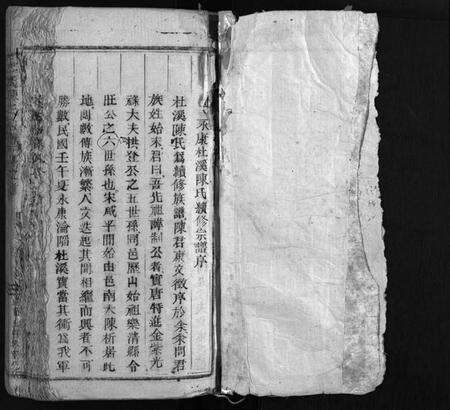 永康杜溪陳氏續修宗譜序
杜溪陳氏爲續修族譜陳君康文徵序於余余問君
族姓始末君曰吾先祖諱制公者實唐特進金紫光
祿大夫拱登公之五世孫同邑歷山始祖樂清縣令
旺公之六世孫也宋咸平間始由邑南大陳析居此
地閱數傳族漸繁人文迭起其間相繼而興者不可
勝數民國壬午夏永康淪陷杜溪實當其衝爲我軍